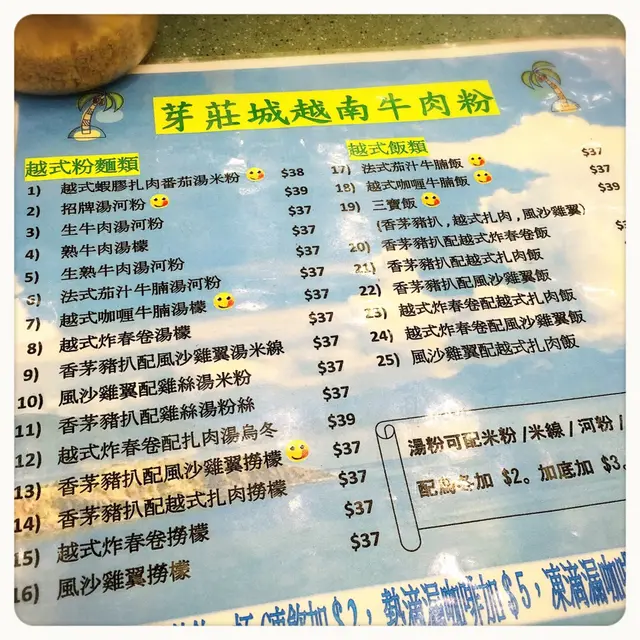 芽莊城越南牛肉粉
越式粉麵類
1) 越式蝦膠扎肉番茄湯米粉 $38
2) 招牌湯河粉 $39
3) 生牛肉湯河粉 $37
4) 熟牛肉湯檬 $37
5) 生熟牛肉湯河粉
6) 法式茄汁牛腩湯河粉 $37
7) 越式咖喱牛腩湯檬 $37
8) 越式炸春卷湯檬 $37
9) 香茅豬扒配風沙雞翼湯米線 $37
10) 風沙雞翼配雞絲湯米粉 $37
11) 香茅豬扒配雞絲湯粉絲 $37
12) 越式炸春卷配扎肉湯烏冬 $39
13) 香茅豬扒配風沙雞翼撈檬 $37
14) 香茅豬扒配越式扎肉撈檬 $37
15) 越式炸春卷撈檬 $37
16) 風沙雞翼撈檬 $37
越式飯類
17) 法式茄汁牛腩飯 $37
18) 越式咖喱牛腩飯 $37
19) 三寶飯 $39
(香茅豬扒,越式扎肉,風沙雞翼)
20) 香茅豬扒配越式炸春卷飯
21) 香茅豬扒配越式扎肉飯
22) 香茅豬扒配風沙雞翼飯
23) 越式炸春卷配越式扎肉飯
24) 越式炸春卷配風沙雞翼飯
25) 風沙雞翼配越式扎肉飯
湯粉可配米粉/米線/河粉/
配烏冬加 $2。加底加 $3。
凍飲加$2，熱滴漏咖啡加$5，凍滴漏咖啡